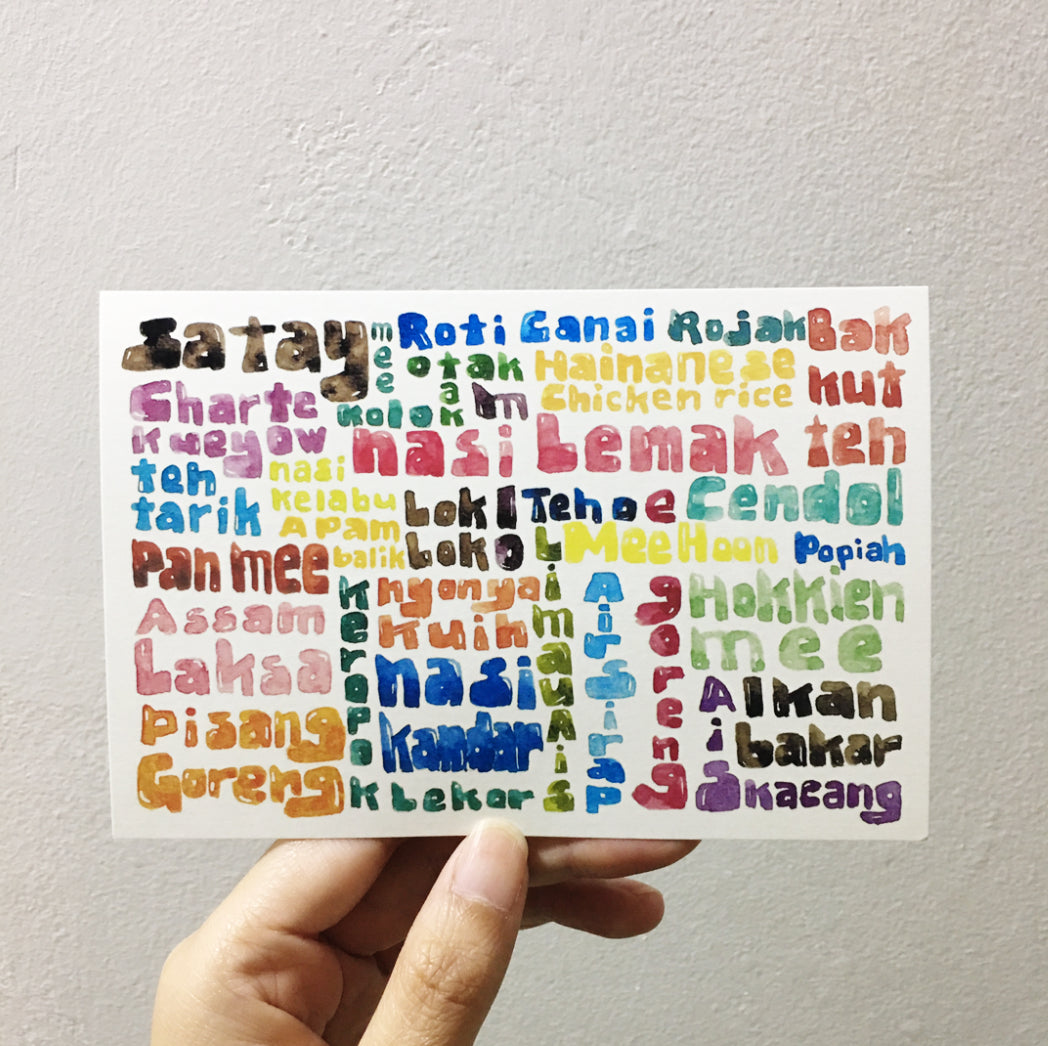 satay
mee
Kolok
Roti Canai
Rojak
Bak
kut
teh
otak
otak
Hainanese
Chicken rice
Charte
Kueyow
nasi Lemak
teh
tarik
nasi
Kelabu
APam
balik
Lok
Lok
Teh o
Limau Ais
Cendol
Mee Hoon
Popiah
Pan mee
Keropo
k Lekor
nyonya
Kuih
Air Sirap
goreng
Hokkien
mee
Assam
Laksa
nasi
kandar
Pisang
Goreng
Ais
kacang
Ikan
bakar